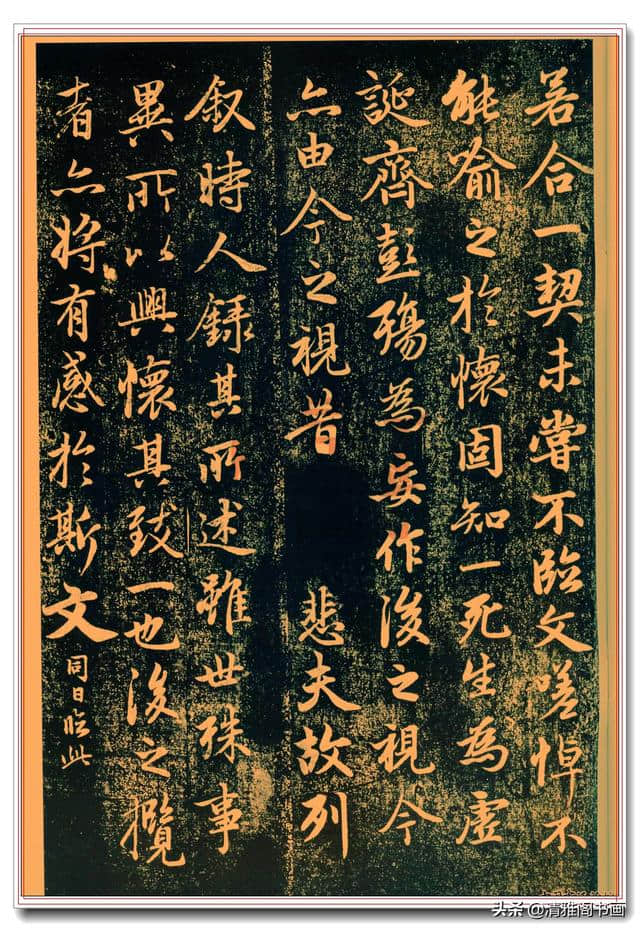 若合一契未嘗不臨文嗟悼不
能喻之於懷固知一死生為虛
誕齊彭殤為妄作後之視今
亦由今之視昔 悲夫故列
叙時人録其所述雖世殊事
異所以興懷其致一也後之攬
者亦將有感於斯文 同日臨此
头条 @清雅阁书画